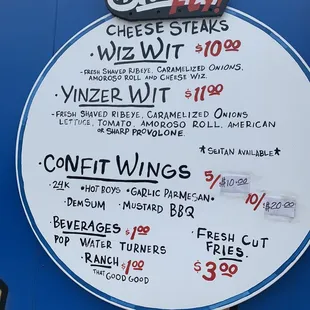 CHEESE STEAKS
·WIZ WIT $10.00
-FRESH SHAVED RIBEYE, CARAMELIZED ONIONS,
AMOROSO ROLL AND CHEESE WIZ.
·YINZER WIT $11.00
-FRESH SHAVED RIBEYE, CARAMELIZED ONIONS
LETTUCE, TOMATO, AMOROSO ROLL, AMERICAN
OR SHARP PROVOLONE.
*SEITAN AVAILABLE*
·CONFIT WINGS 5/$10.00
·24K ·HOT BOYS ·GARLIC PARMESAN· 10/$20.00
·DEM SUM ·MUSTARD BBQ
·BEVERAGES $1.00
POP WATER TURNERS
·RANCH $1.00
THAT GOOD GOOD
·FRESH CUT
FRIES.
$3.00